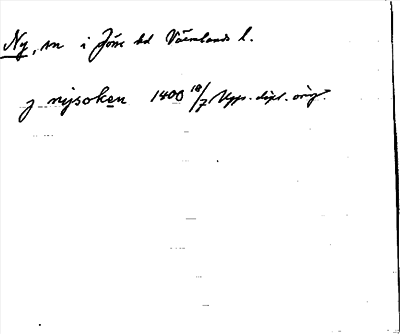 Ny, sn i Jösse hd Värmlands l.
j nysoken 1400 10/7 Upps. dipl. orig.